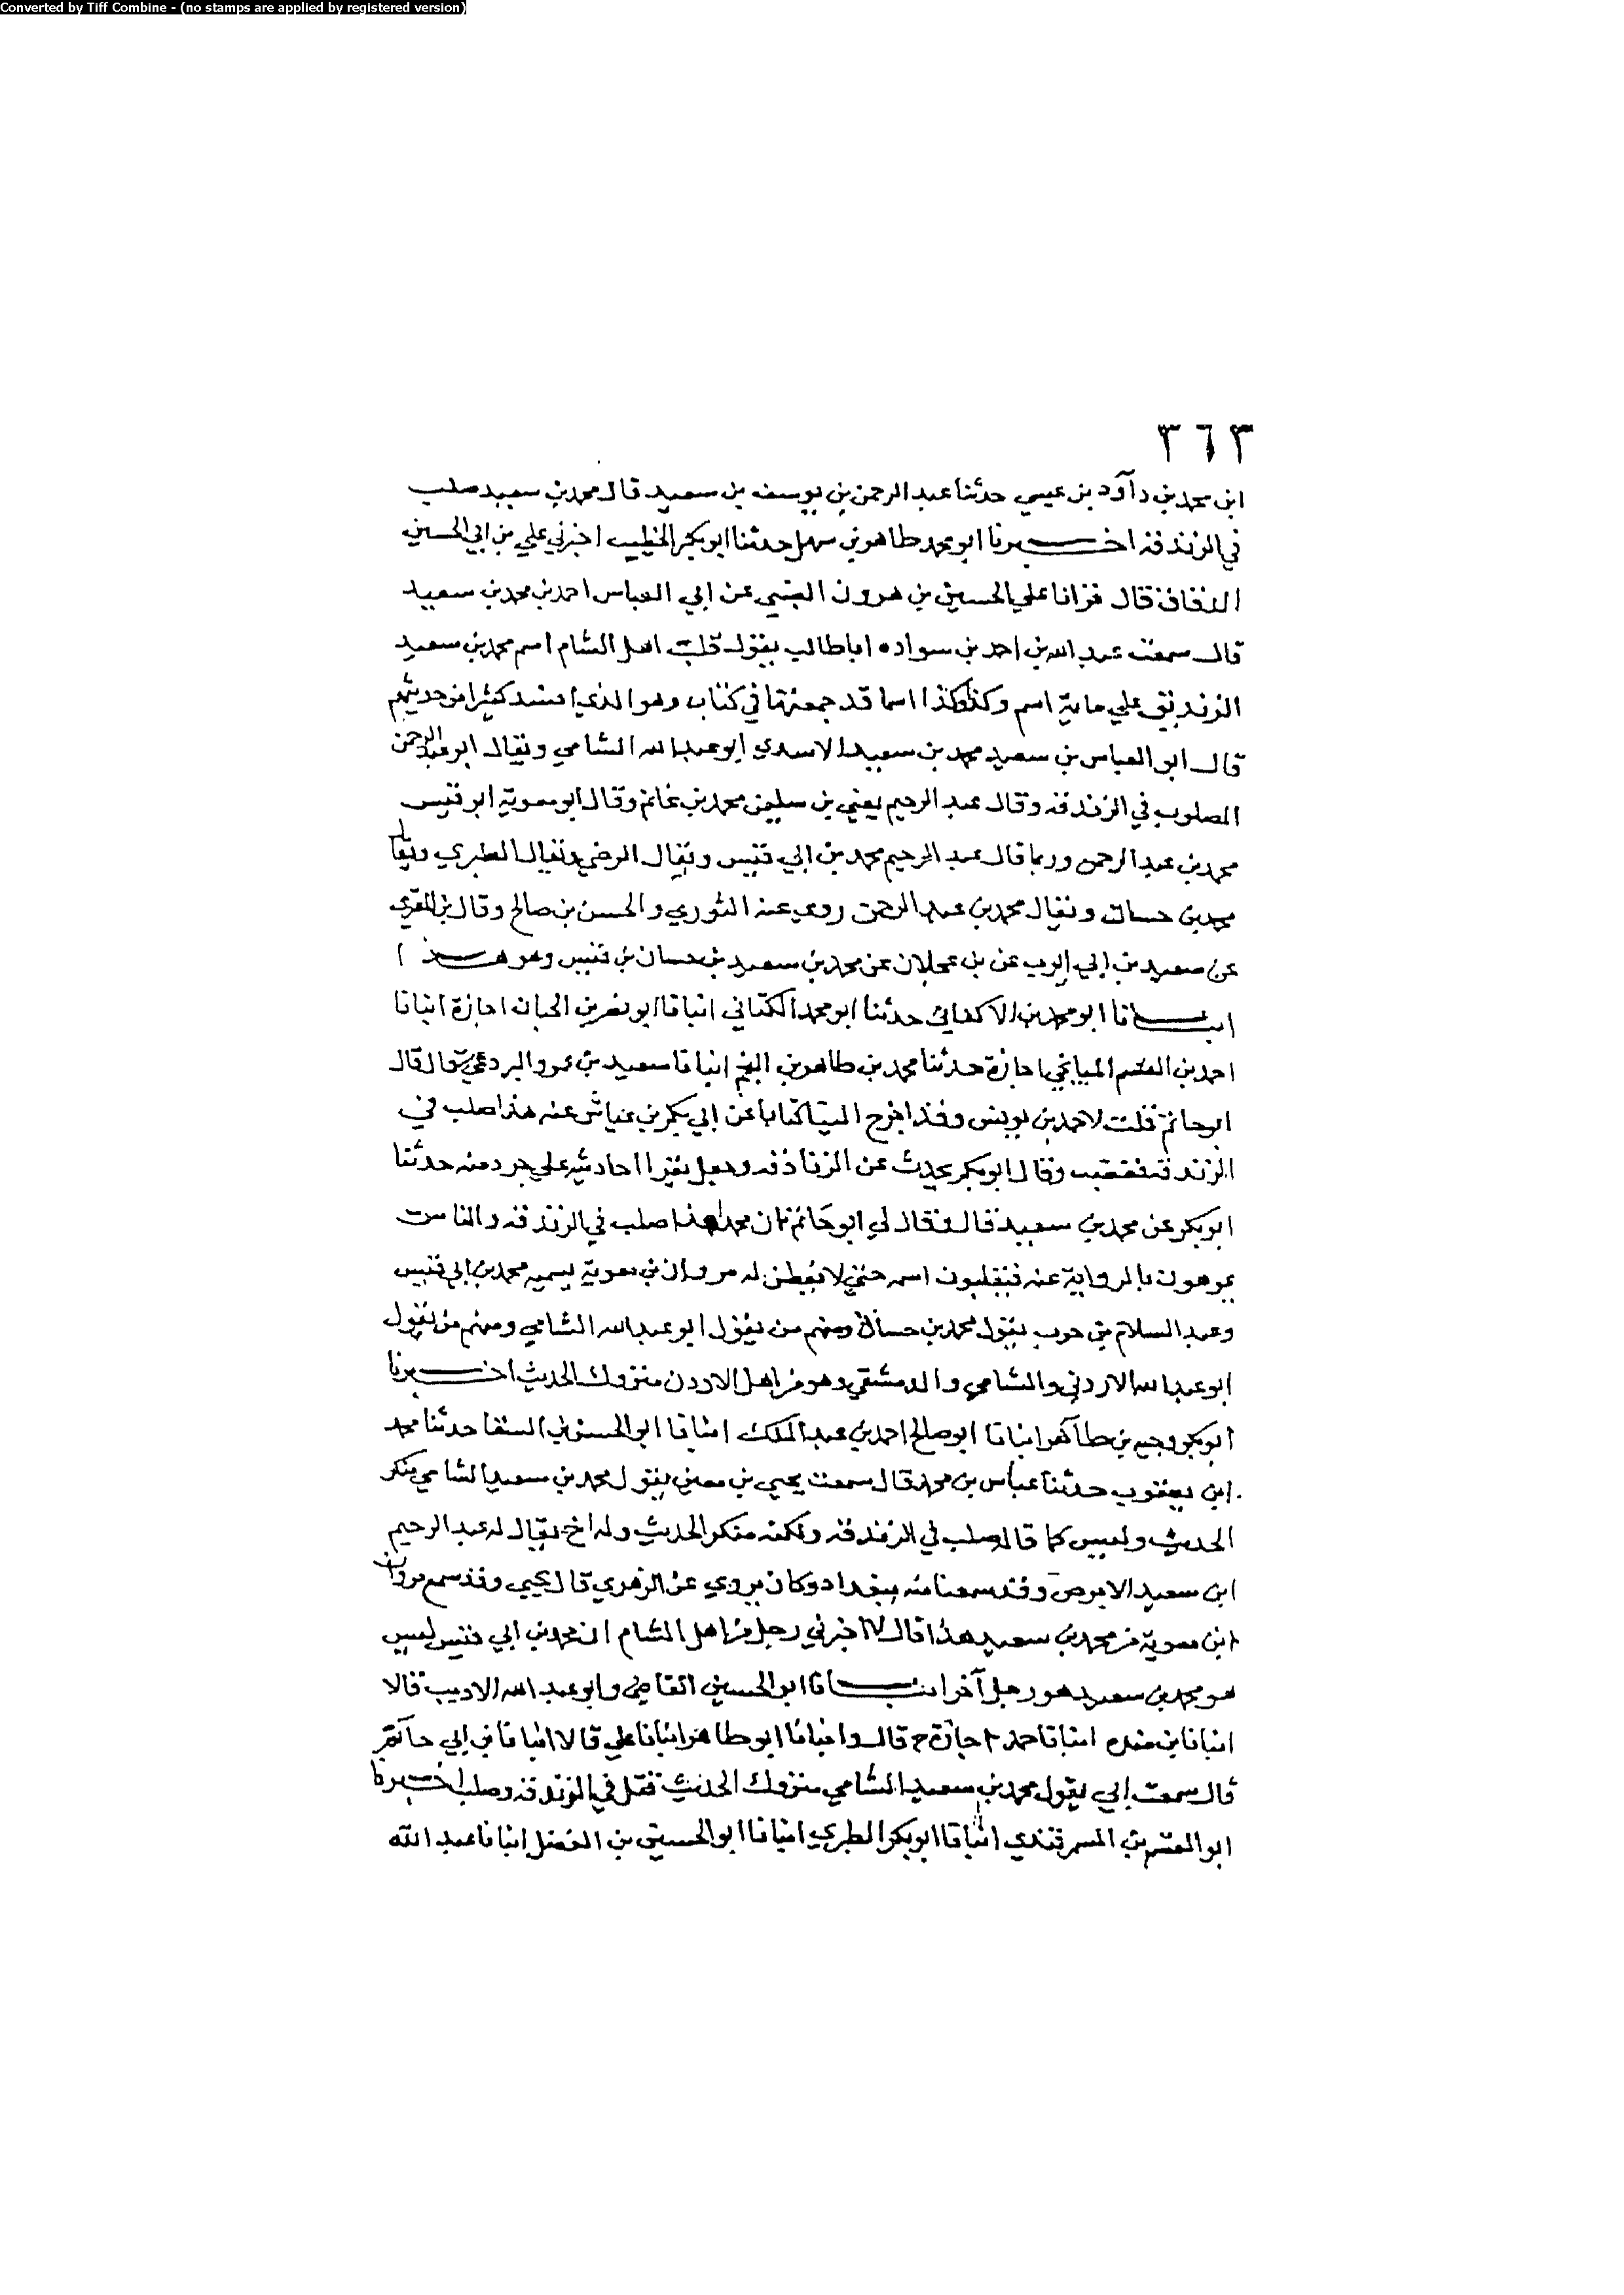 Converted by Tiff Combine - (no stamps are applied by registered version)
٣٦٣
ابن محمد بن داود بن عيسي حدثنا عبد الرحمن بن يوسف بن سعيد قال محمد بن سعيد صلب
في الزندقة اخبرنا ابو محمد طاهر بن سهل حدثنا ابو بكر الخطيب اخبرني علي بن ابي الحسين
قال قرانا علي الحسين بن هرون الضبي عن ابي العباس احمد بن محمد بن سعيد
قال سمعت عبد الله بن احمد بن سواده ابا طالب يقول قلب اهل الشام اسم محمد بن سعيد
الزنديق علي ماية اسم وكذا وكذا اسما قد جمعتها في كتاب وهو الذي افسد كثيرا من حديثهم
قال ابو العباس بن سعيد محمد بن سعيد الاسدي ابو عبد الله الشامي ويقال ابو عبد الرحمن
المصلوب في الزندقة وقال عبد الرحيم يعني بن سليمن محمد بن غانم وقال ابو معوية ابو قيس
محمد بن عبد الرحمن وربما قال عبد الرحيم محمد بن ابي قيس ويقال الرضي ويقال الطبري ويقال
محمد بن حسان ويقال محمد بن عبد الرحمن روي عنه الثوري والحسن بن صالح وقال بن المقري
عن سعيد بن ابي ايوب عن بن عجلان عن محمد بن سعيد بن حسان بن قيس وهو هذا
انبانا ابو محمد بن الاكفاني حدثنا ابو محمد الكتاني انبانا ابو نصر بن الجبان اجازة انبانا
احمد بن القسم الميانجي اجازة حدثنا محمد بن طاهر بن النجم انبانا سعيد بن عمرو البردعي قال قال
ابو حاتم قلت لاحمد بن يونس وقد اخرج الينا كتابا عن ابي بكر بن عياش عنه هذا صلب في
الزندقة فغضب وقال ابو بكر يحدث عن الزنادقة وجعل يقرا احاديثه علي حرد منه حدثنا
ابو بكر عن محمد بن سعيد قال فقال لي ابو حاتم فان محمد هذا صلب في الزندقة والناس
يموهون بالرواية عنه فيقلبون اسمه حتي لا يفطن له مروان بن معوية يسميه محمد بن ابي قيس
وعبد السلام بن حرب يقول محمد بن حسان ومنهم من يقول ابو عبد الله الشامي ومنهم من يقول
ابو عبد الله الاردني والشامي والدمشقي وهو من اهل الاردن متروك الحديث اخبرنا
ابو بكر وجيه بن طاهر انبانا ابو صالح احمد بن عبد الملك انبانا ابو الحسن بن السقا حدثنا محمد
ابن يعقوب حدثنا عباس بن محمد قال سمعت يحيي بن معين يقول محمد بن سعيد الشامي منكر
الحديث وليس كما قالوا صلب في الزندقة ولكنه منكر الحديث وله اخ يقال له عبد الرحيم
ابن سعيد الابرص وقد سمعنا منه ببغداد وكان يروي عن الزهري قال يحيي وقد سمع مروان
ابن معوية من محمد بن سعيد هذا قال لا اخبرني رجل من اهل الشام ان محمد بن ابي قيس ليس
هو محمد بن سعيد هو رجل آخر انبانا ابو الحسين القاضي وابو عبد الله الاديب قالا
انبانا بن منده انبانا حمد اجازة ح قال وانبانا ابو طاهر انبانا علي قالا انبانا بن ابي حاتم
قال سمعت ابي يقول محمد بن سعيد الشامي متروك الحديث قتل في الزندقة وصلب اخبرنا
ابو القسم بن السمرقندي انبانا ابو بكر الطبري انبانا ابو الحسين بن الفضل انبانا عبد الله